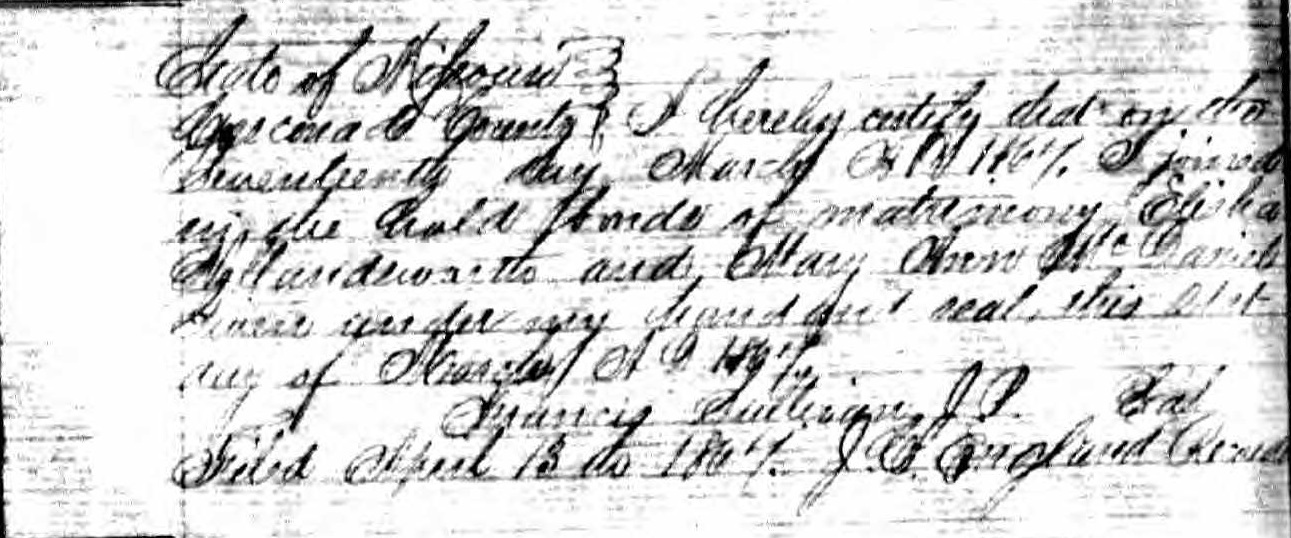 State of Missouri }
Gasconade County } I hereby certify that on the
Seventeenth day March A D 1867. I joined
in the hold bonds of matrimony Elisha
Hollandsworth and Mary Ann McDaniel
Given under my hand and seal, this 21st
day of March A D 1867.
Francis Sullivan, J P. Seal
Filed April 13 1867. England Record